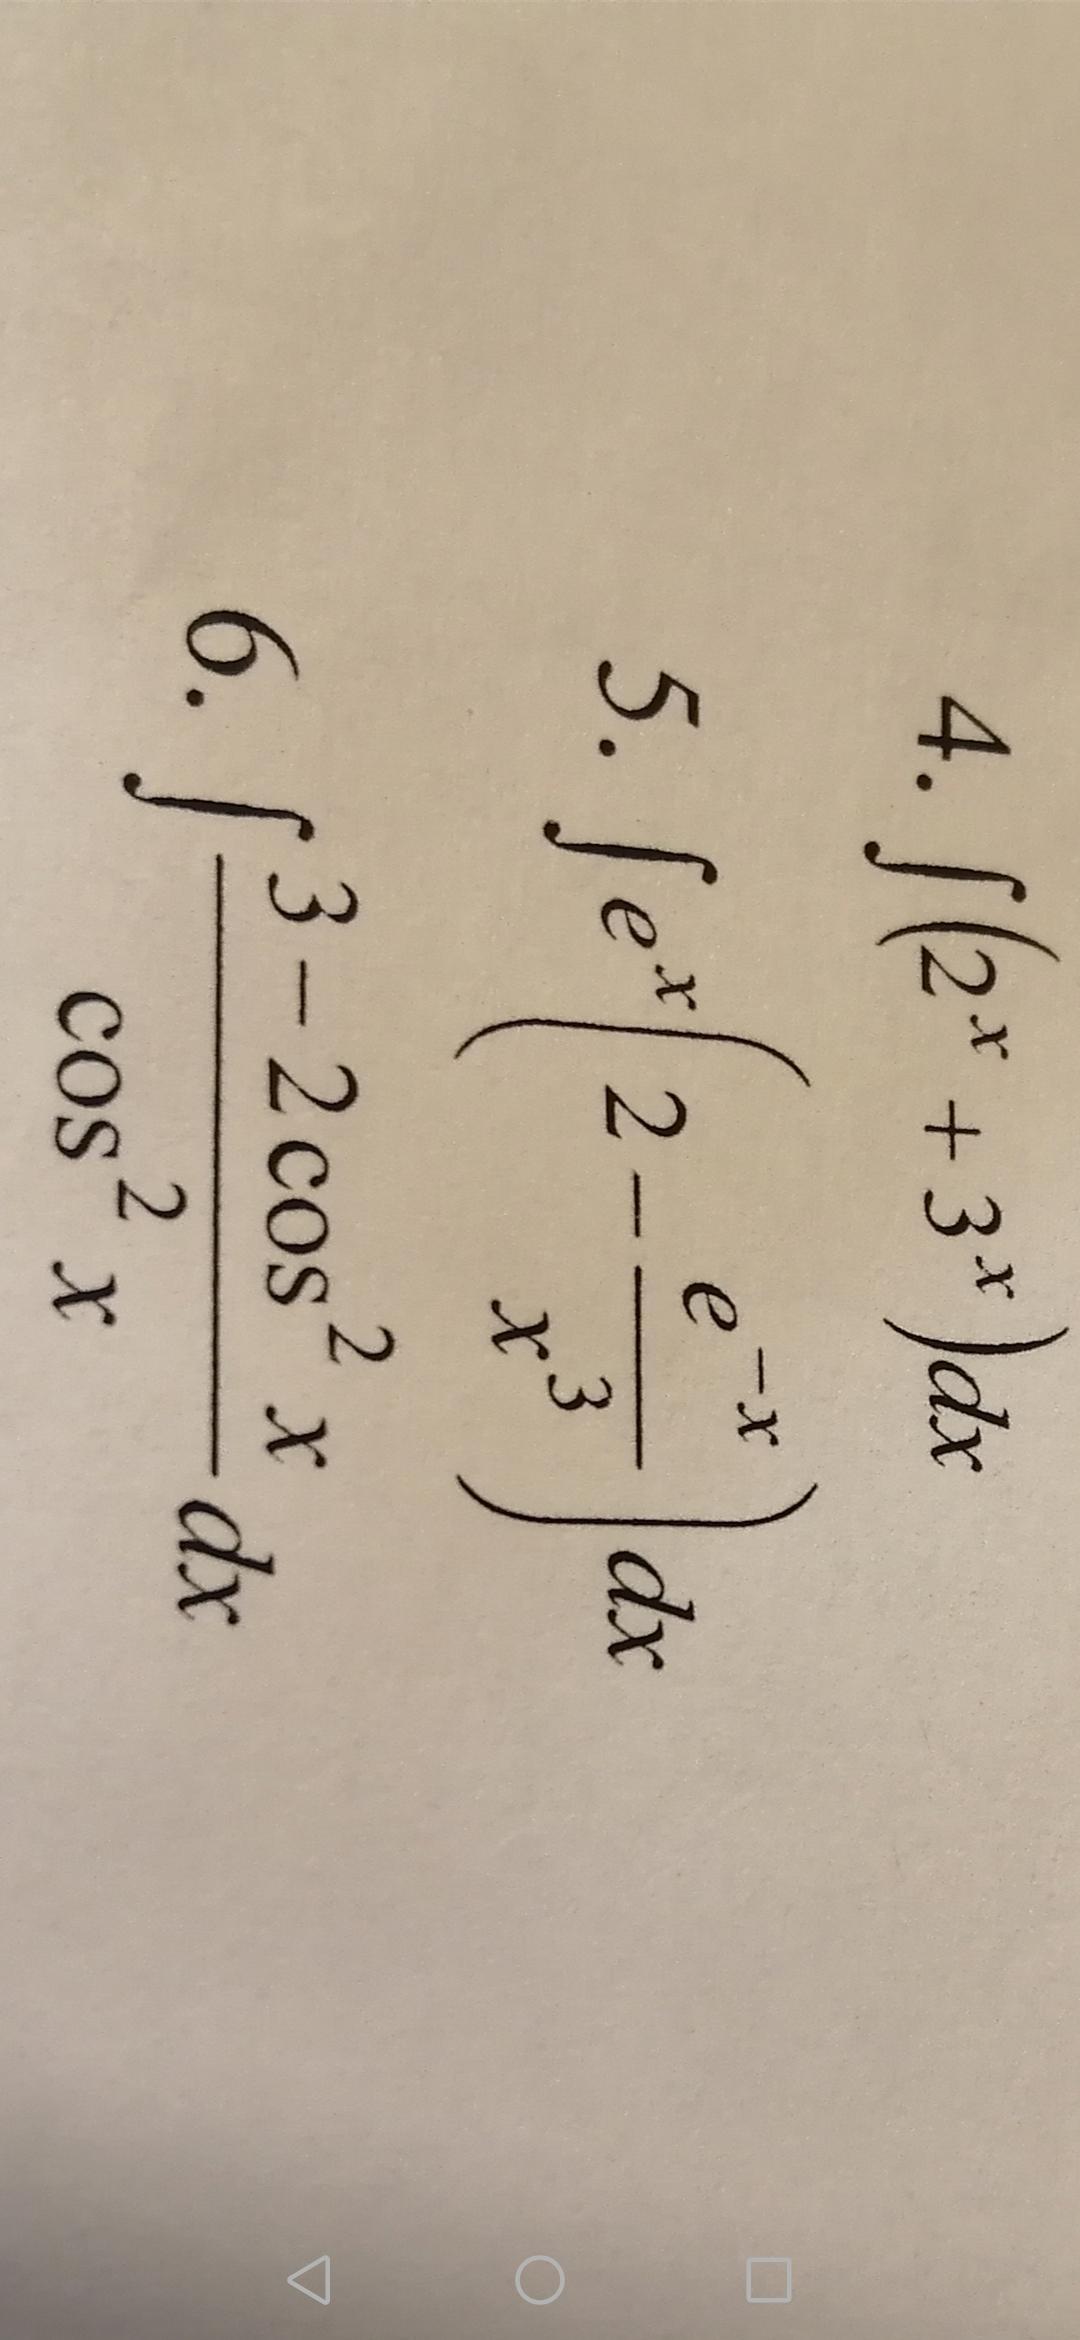 4. ∫(2ˣ + 3ˣ)dx
5. ∫eˣ(2 − e⁻ˣ/x³)dx
6. ∫(3 − 2cos² x)/(cos² x) dx